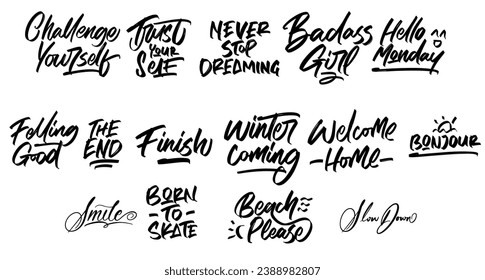 Challenge
Yourself
Trust
Your
Self
Never
Stop
Dreaming
Badass
Girl
Hello
Monday
Felling
Good
The
End
Finish
Winter
Coming
Welcome
-Home-
Bonjour
Smile
Born
-To-
Skate
Beach
Please
Slow Down
shutterstock.com · 2388982807